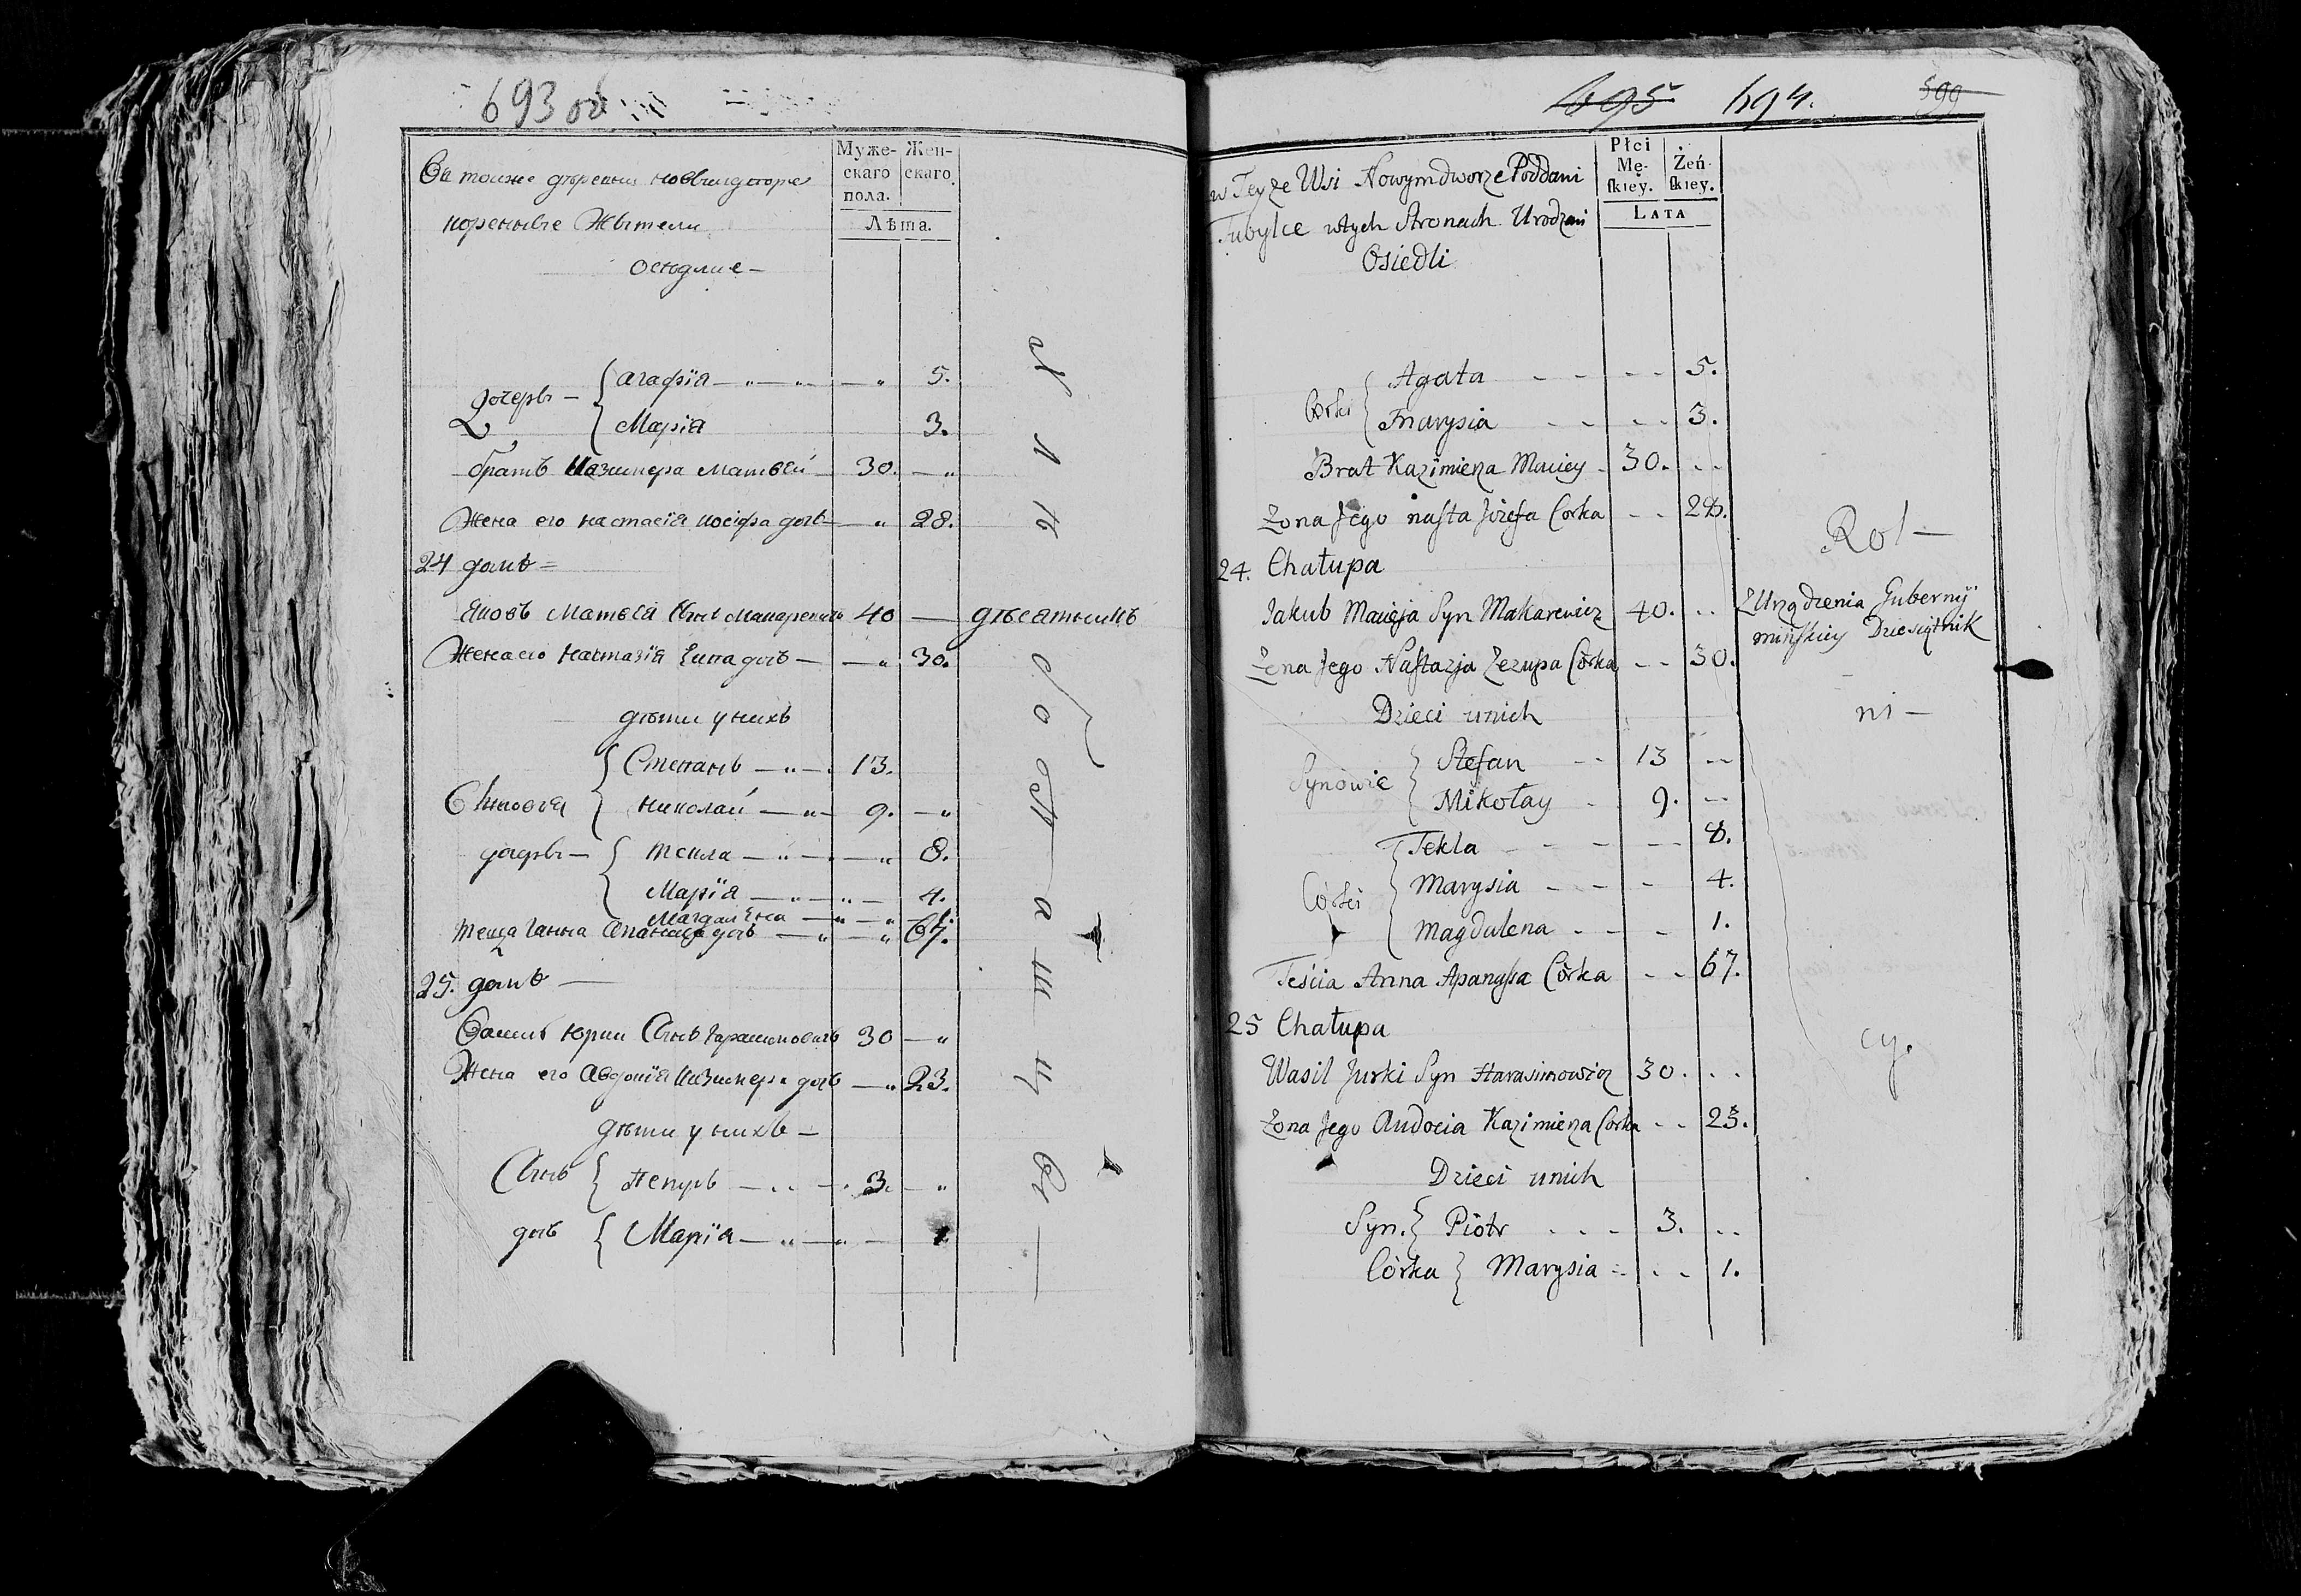 693 об
Въ тойже деревни новымдворе
коренные Жытели
оседлые —
Муже-
скаго
пола.
Жен-
скаго.
Лѣта.
дочеры — { агафія — 5.
Марія 3.
братъ Казимера матвей — 30. —
Жена его настасія иосифа дочь — 28.
24 домъ =
Яковъ Матвея Сынъ Макаревичъ 40 — десатникъ
Жена его Настазія Еипа дочь — 30.
дѣти у нихъ
Сыновья { Степанъ — 13.
николай — 9. —
дочеры — { текла — 8.
Марія — 4.
Магдалена — 1.
теща Ганна Апанаса дочь — 67.
25. домъ —
Василь Юрки Сынъ Гарасимовичъ 30 —
Жена его Авдотія Казимера дочь — 23.
дѣти у нихъ —
Сынъ { Петръ — 3. —
дочь { Марія — 1
х л ѣ б о п а ш ц ы —
695 694. 599
w Teyże Wsi Nowymdworze Poddani
Tubylce wtych Stronach Urodzeni
Osiedli
Płci
Mę-
skiey.
Żeń-
skiey.
LATA
Córki { Agata - - - - 5.
Marysia - - - - 3.
Brat Kazimierza Maciey - 30. - -
Żona Jego nasta Jozefa Corka - - 28.
24. Chałupa
Jakub Macieja Syn Makarewicz 40. - - ZUrządzenia Gubernij
minskiey Dziesiętnik
Żona Jego Nastazja Jezupa Córka - - 30.
Dzieci unich
Synowie { Stefan - - 13 - -
Mikołay - 9. - -
Córki { Tekla - - - - - 8.
Marysia - - - 4.
Magdalena - - - 1.
Teścia Anna Apanassa Córka - - 67.
25 Chałupa
Wasil Jurki Syn Harasimowicz 30. - -
Żona Jego Audocia Kazimierza Corka - - 23.
Dzieci unich
Syn. { Piotr - - - 3. - -
Córka } Marysia - - - 1.
Rol —
ni —
cy.